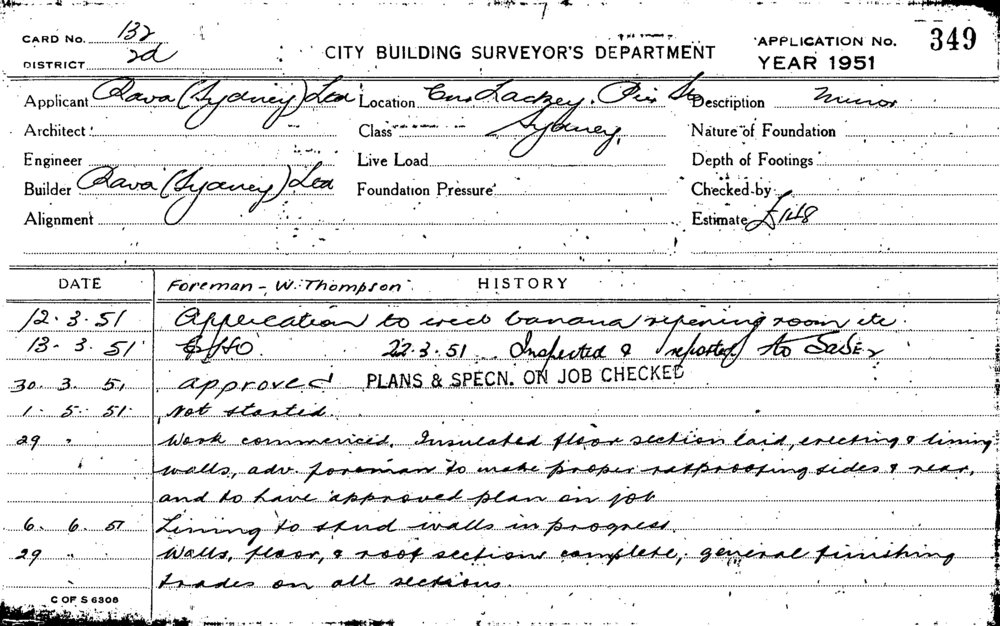 CARD No. 132
DISTRICT 2d
CITY BUILDING SURVEYOR'S DEPARTMENT
APPLICATION No. 349
YEAR 1951
Applicant Rava (Sydney) Ltd Location Cnr. Lackey. Pier St Description Minor
Architect Class Sydney, Nature of Foundation
Engineer Live Load Depth of Footings
Builder Rava (Sydney) Ltd Foundation Pressure Checked by
Alignment Estimate £148
DATE Foreman - W. Thompson HISTORY
12.3.51 Application to erect banana ripening room etc.
13.3.51 22.3.51 Inspected & reported to
30.3.51 approved PLANS & SPECN. ON JOB CHECKED
1.5.51. Not started.
29 " Work commenced. Insulated floor section laid, erecting & lining
walls, adv. foreman to make proper ratproofing sides & rear,
and to have approved plan on job
6.6.51 Lining to stud walls in progress.
29 " Walls, floor, & roof section complete, general finishing
trades on all sections.
C OF S 6308